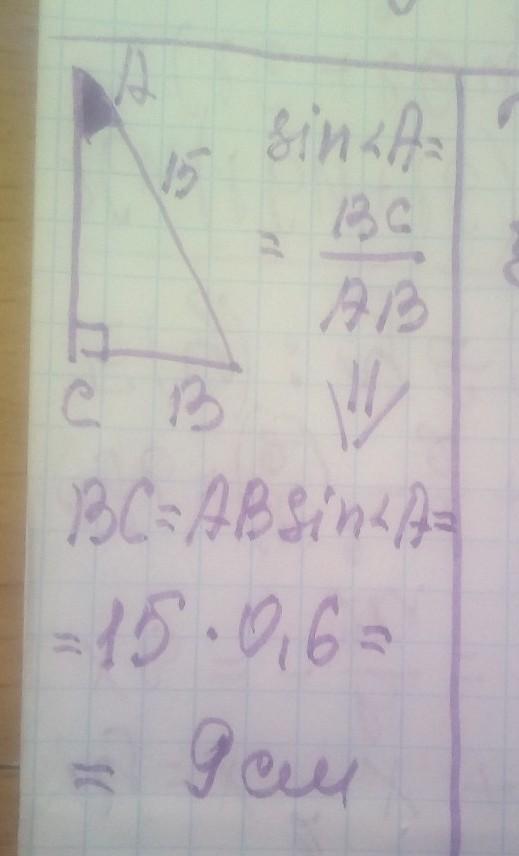 A
15
C
B
sin<A=
= BC
AB
BC=ABsin<A=
=15·0,6=
= 9см